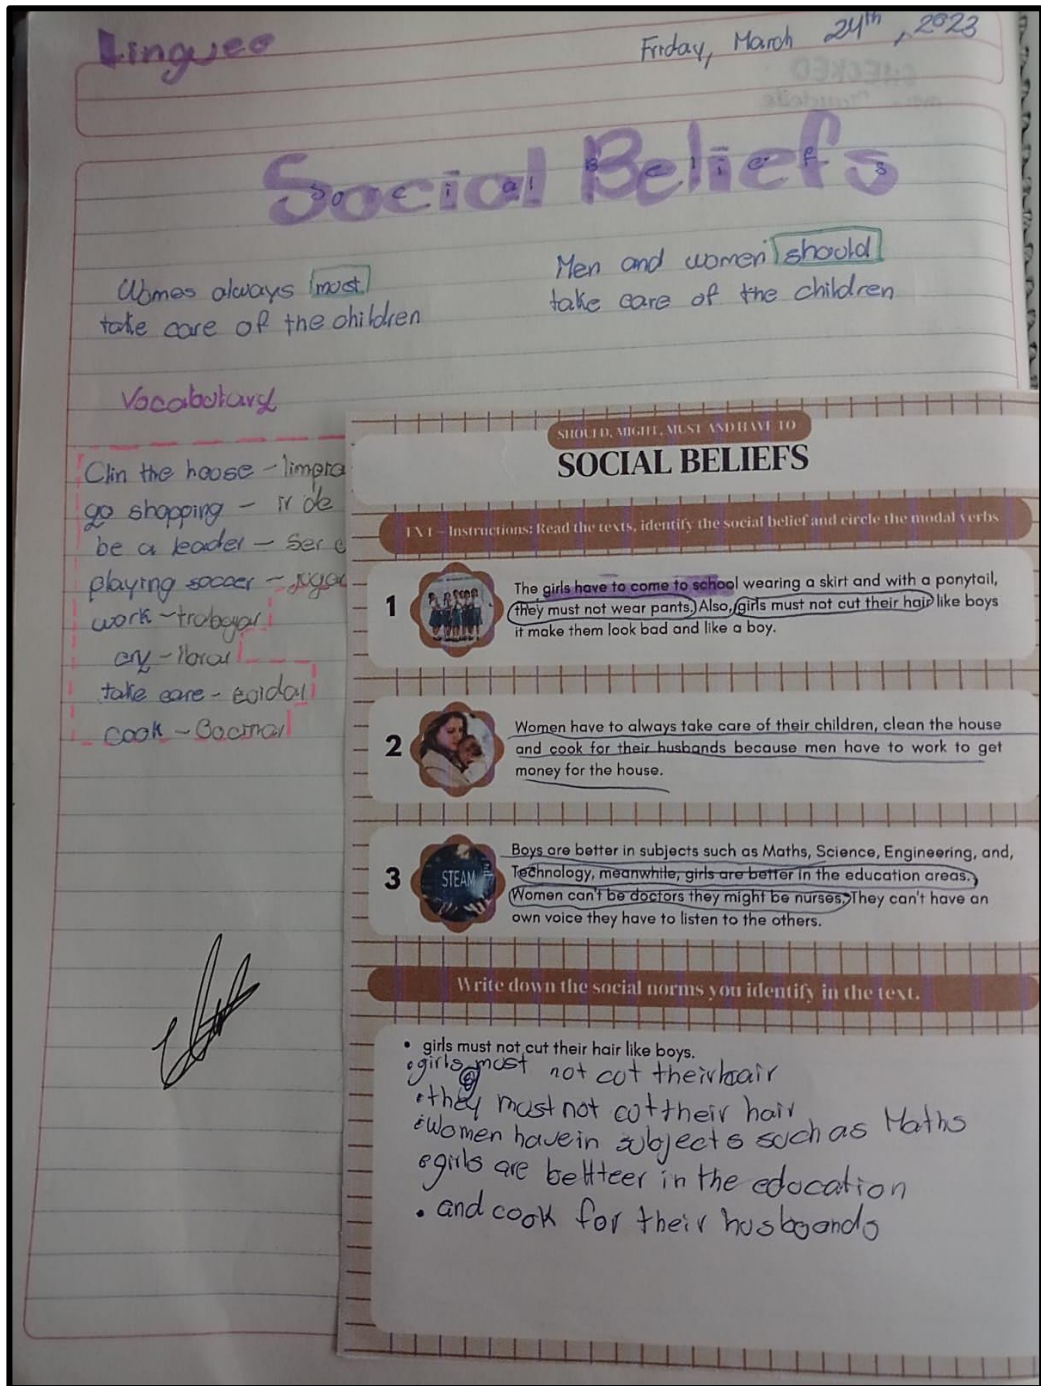 Lingueo
Friday, March 24th, 2023
CHECKED
Social Beliefs
Social Beliefs
Womes always most
take care of the children
Men and women should
take care of the children
Vocabulary
Clin the house - limpia
go shopping - ir de
be a leader - Ser
playing soccer - jugar
work - trabajar
cry - llorar
take care - cuidar
cook - Cocinar
SHOULD, MIGHT, MUST AND HAVE TO
SOCIAL BELIEFS
EX 1 – Instructions: Read the texts, identify the social belief and circle the modal verbs
1
The girls have to come to school wearing a skirt and with a ponytail,
they must not wear pants. Also, girls must not cut their hair like boys
it make them look bad and like a boy.
2
Women have to always take care of their children, clean the house
and cook for their husbands because men have to work to get
money for the house.
3
STEAM
Boys are better in subjects such as Maths, Science, Engineering, and,
Technology, meanwhile, girls are better in the education areas.
Women can't be doctors they might be nurses. They can't have an
own voice they have to listen to the others.
Write down the social norms you identify in the text.
• girls must not cut their hair like boys.
• girls must not cut their hair
• they must not cut their hair
• Women have in subjects such as Maths
• girls are beltteer in the education
• and cook for their husbands